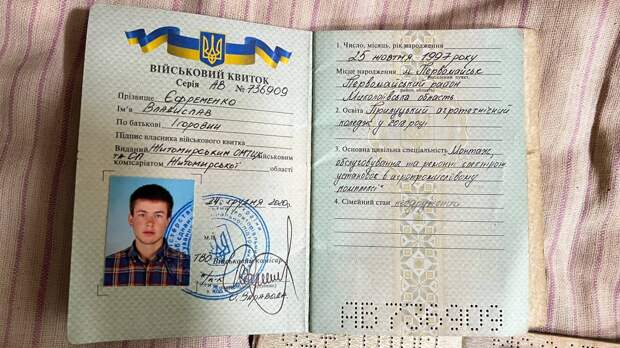 ВІЙСЬКОВИЙ КВИТОК
Серія АВ № 736909
Прізвище Єфременко
Ім'я Владислав
По батькові Ігорович
Підпис власника військового квитка
Виданий Житомирським ОМТЦК військовим
та СП
комісаріатом Житомирської області
24 грудня 2020р
М.П.
ТВО Військовий комісар
1. Число, місяць, рік народження
25 жовтня 1997 року
Місце народження м. Первомайськ
Первомайський район
Миколаївська область
2. Освіта Прилуцький агротехнічний
коледж у 2018 році
3. Основна цивільна спеціальність Монтаж,
обслуговування та ремонт електрич
установок в агропромисловому
комплексі
4. Сімейний стан неодружений
АВ 736909